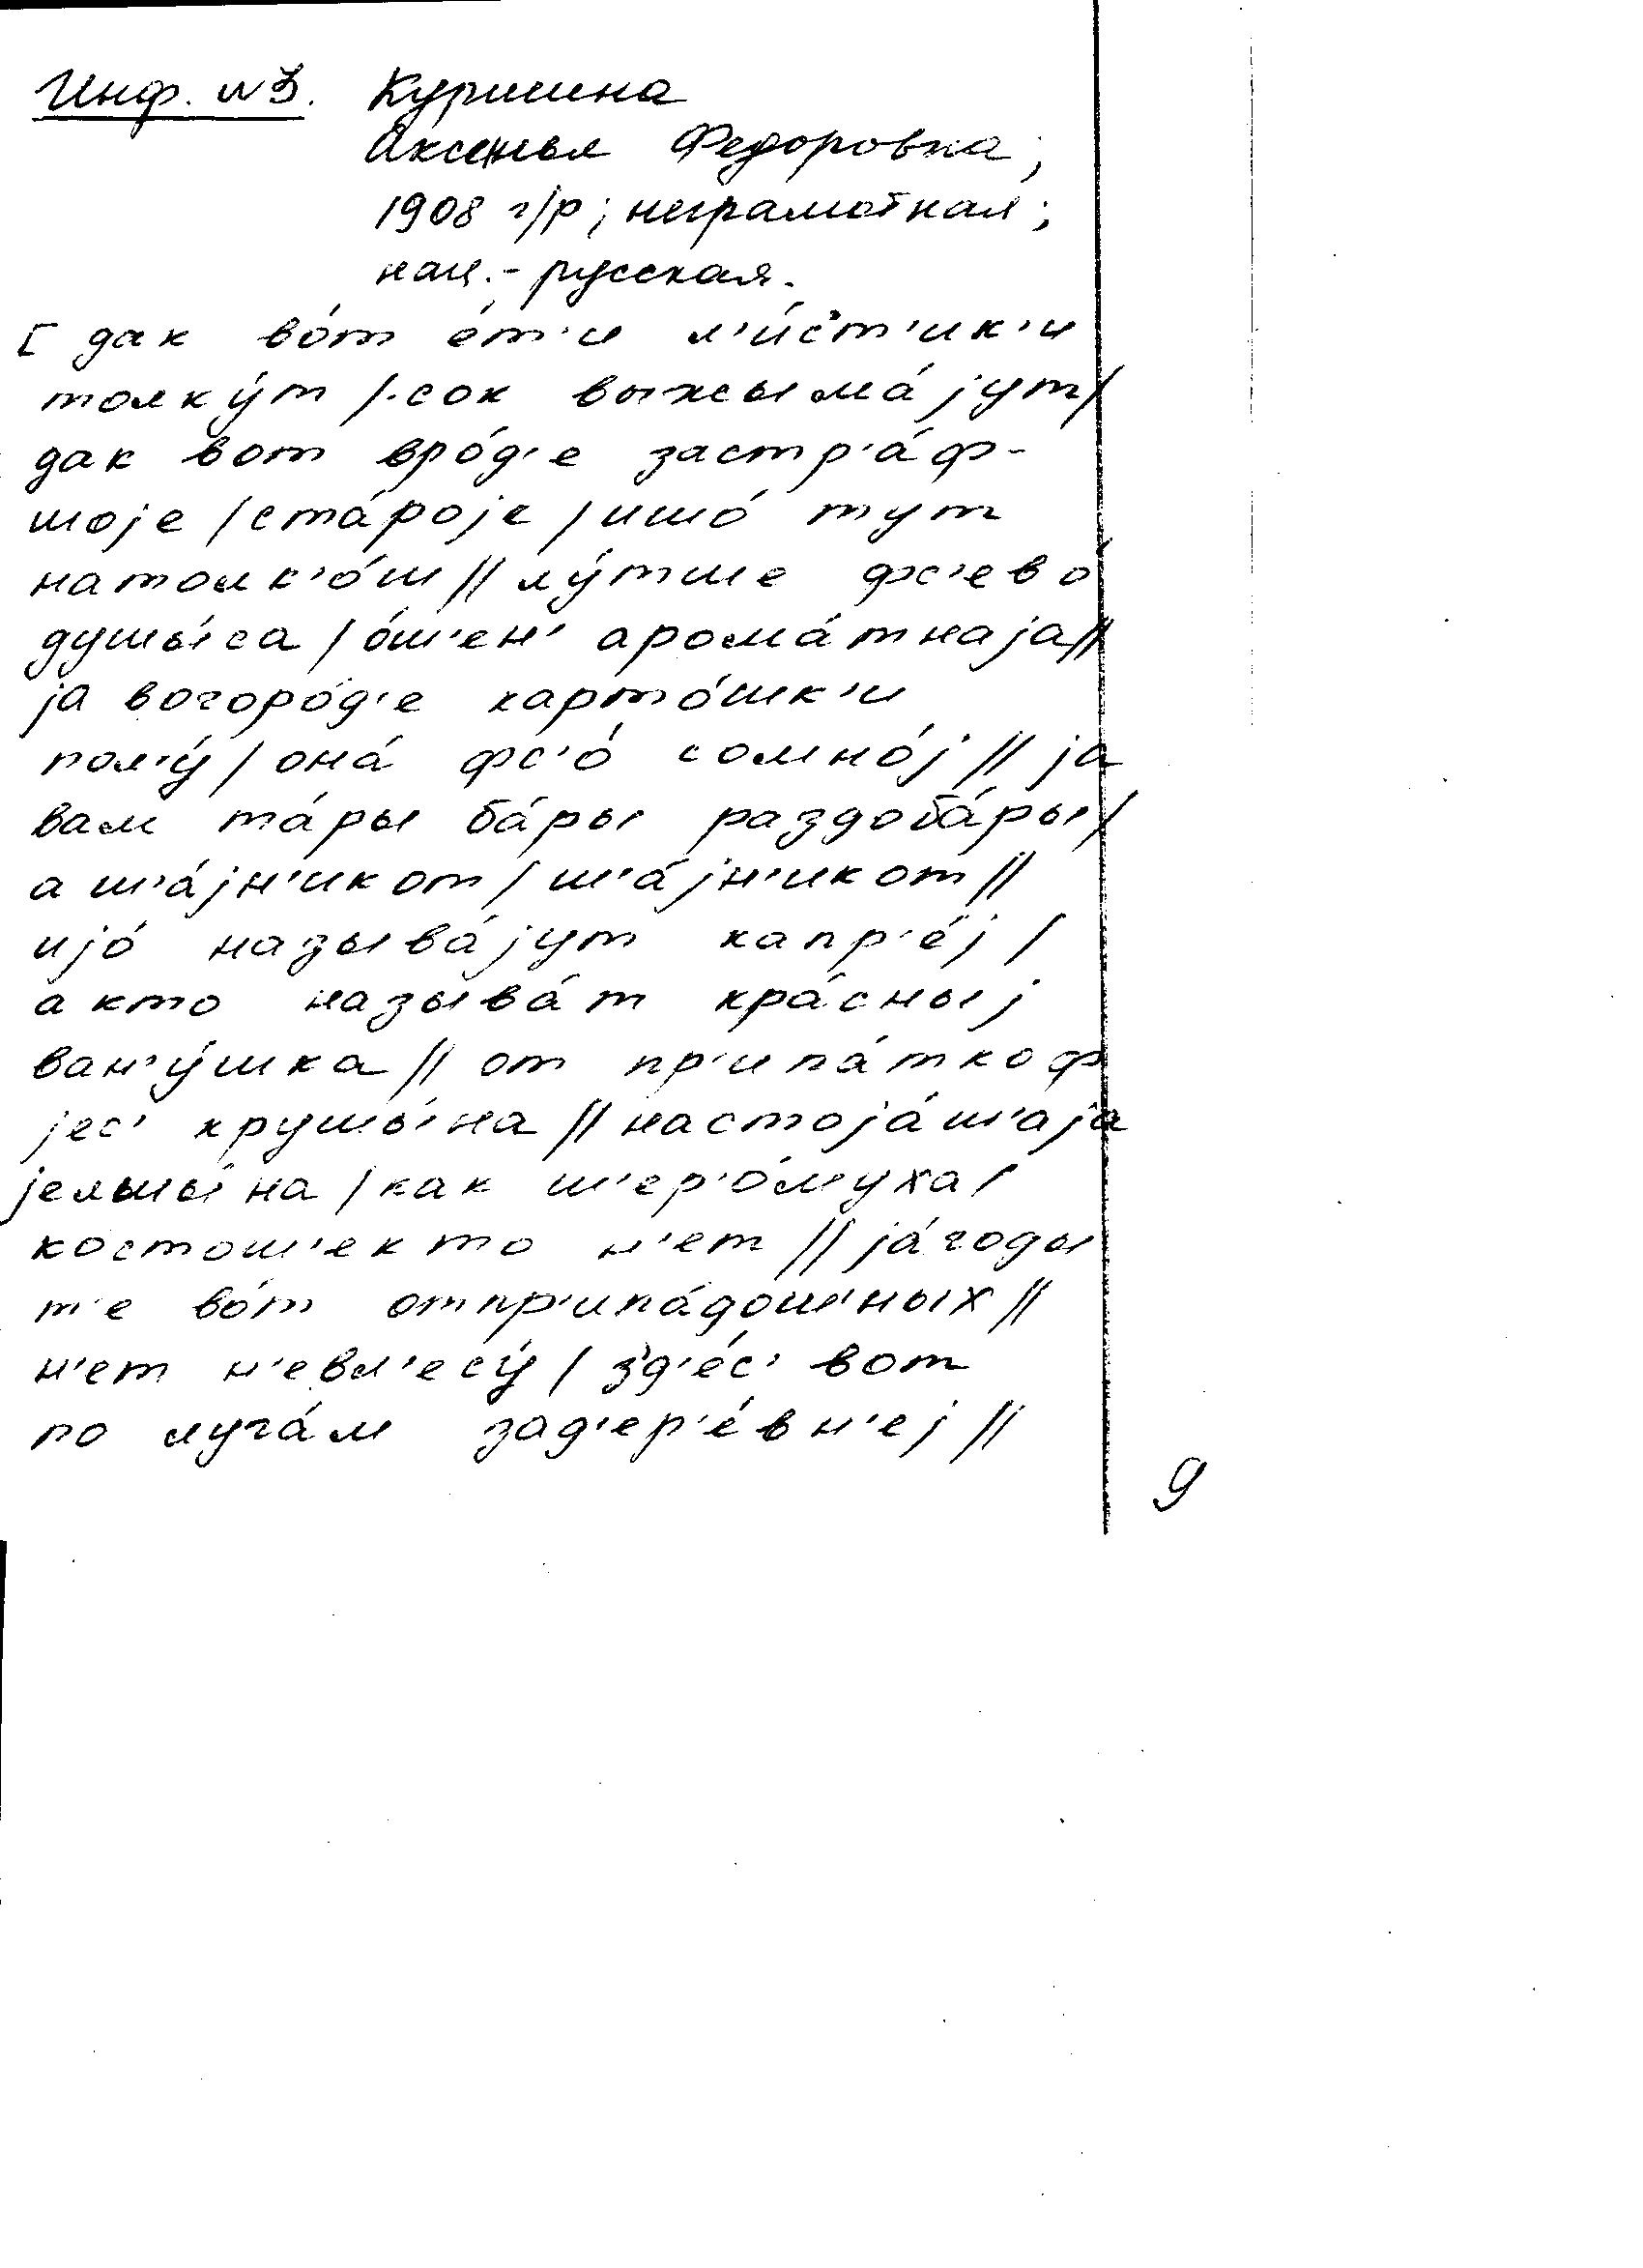 Инф. №3. Куришина
Аксенья Федоровна;
1908 г/р; неграмотная;
нац.- русская.
[ дак во́т е́т'и л'и́с'т'ик'и
толку́т /.сок выжыма́јут/
дак вот вро́д'е застр'а́ф-
шоје /ста́роје /ишо́ тут
натолк'о́ш // лу́тше фс'ево́
душы́са / о́ш'ен' арома́тнаја//
ја вогоро́д'е карто́шк'и
пол'у́ / она́ фс'о́ сомно́ј // ја
вам та́ры ба́ры раздоба́ры/
а ш'а́јн'ик от / ш'а́јн'ик от //
ијо́ называ́јут капр'е́ј /
а кто называ́т кра́сныј
ван'у́шка // от пр'ипа́ткоф
јес' крушы́на // настоја́ш'аја
јелшы́на / как ш'ер'о́муха/
костош'ек то н'ет // ја́годы
т'е во́т отпр'ипа́дош'ных //
н'ет н'евл'есу́ / з'д'е́с' вот
по луга́м зад'ер'е́вн'еј //
9